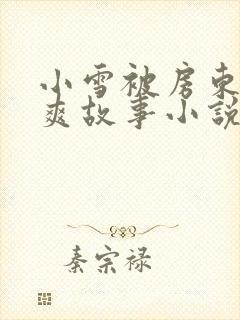 小雪被房东
爽故事小说
秦宗禄